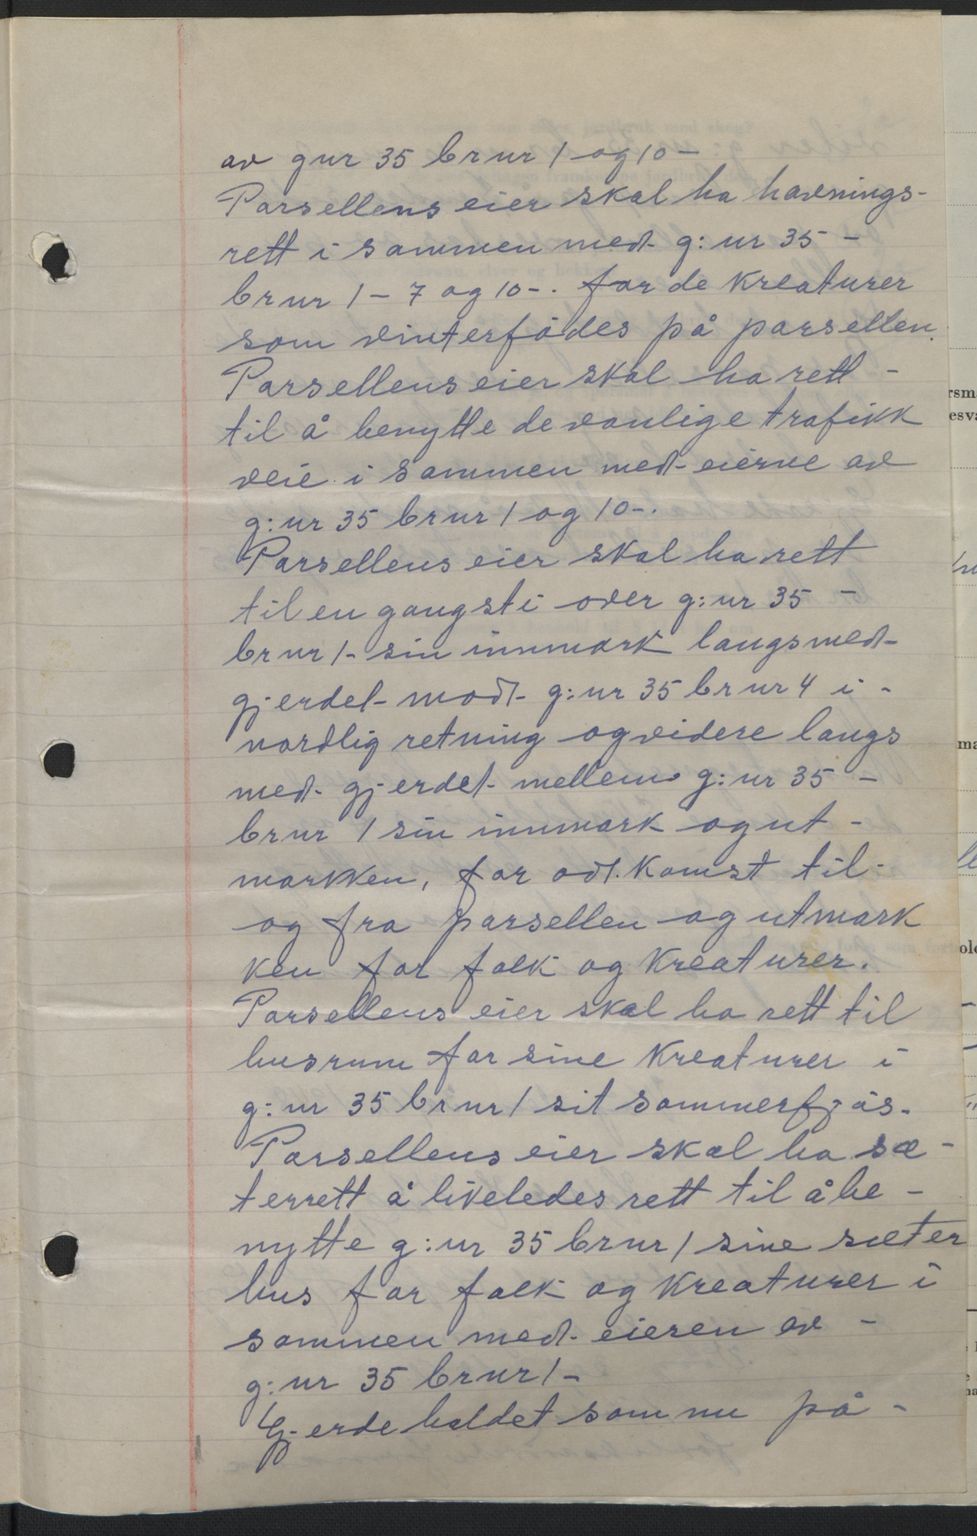 av gnr 35 brnr 1 og 10 –
Parsellens eier skal ha havnings-
rett i sammen med g:nr 35 –
brnr 1 – 7 og 10 –. for de kreaturer
som vinterfødes på parsellen.
Parsellens eier skal ha rett –
til å benytte de vanlige trafikk
veie i sammen med eierne av
g:nr 35 brnr 1 og 10 –.
Parsellens eier skal ha rett
til en gangsti over g:nr 35 –
brnr 1 – sin innmark langsmed
gjerdet mod g:nr 35 brnr 4 i –
nordlig retning og videre langs
med gjerdet mellem g:nr 35 –
brnr 1 sin innmark og ut –
markken, for adkomst til –
og fra parsellen og utmark
ken for folk og kreaturer.
Parsellens eier skal ha rett til
husrum for sine kreaturer i
g:nr 35 brnr 1 sit sommerfjøs.
Parsellens eier skal ha sæ –
terrett å likeledes rett til å be –
nytte g:nr 35 brnr 1 sine sæter
hus for folk og kreaturer i
sammen med eieren av –
g:nr 35 brnr 1 –
Gjerdeholdet som nu på –